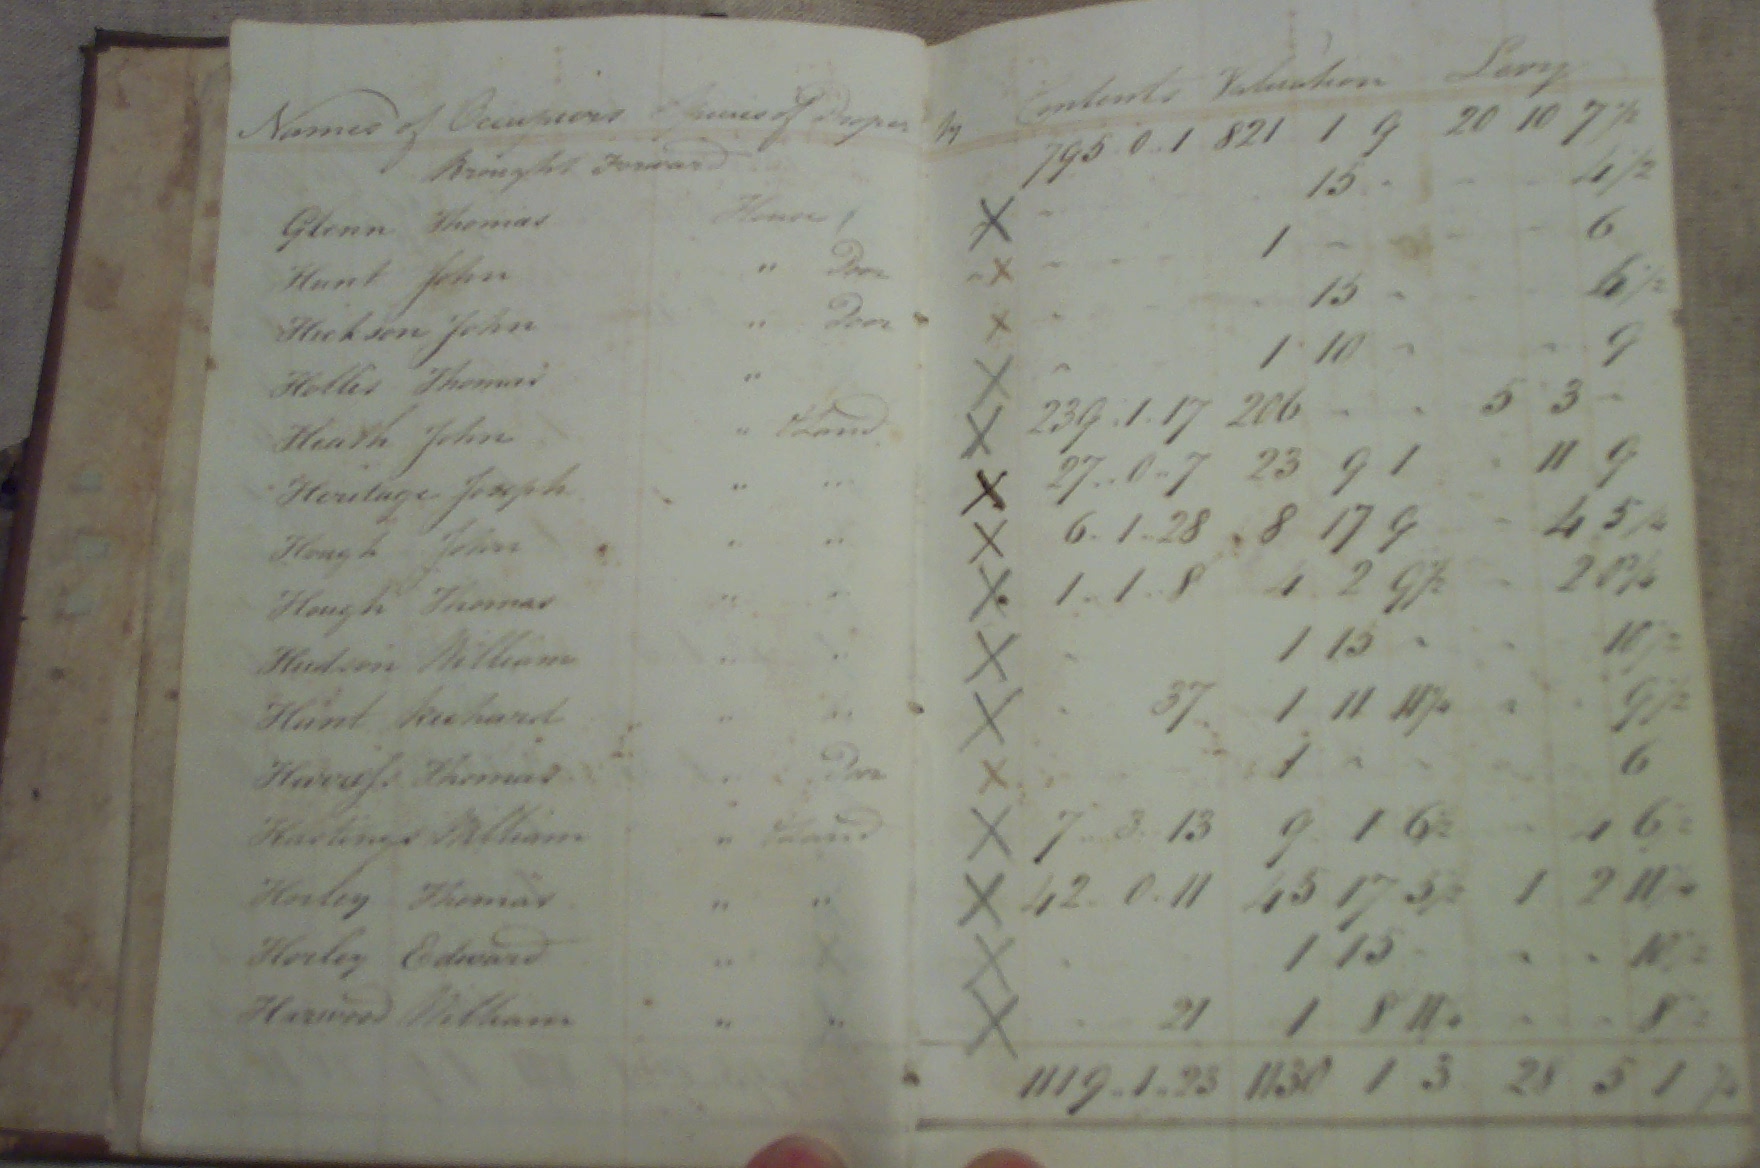 Names of Occupiers Species of Property Contents Valuation Levy
Brought Forward 795..0..1 821 1 9 20 10 7½
Glenn Thomas House 15 - - - 4½
Hunt John " Poor 1 - - - 6
Hickson John " Poor 15 - - - 4½
Holles Thomas " 1 10 - - 9
Heath John " & Land 239..1..17 206 - - 5 3 -
Heritage Joseph " " 27..0..7 23 9 1 - 11 9
Hough John " " 6..1..28 8 17 9 - 4 5¼
Hough Thomas " " 1..1..8 4 2 9½ - 2 0¾
Hudson William " " 1 15 - - - 10½
Hunt Richard " " 37 1 11 11¼ - - 9½
Harriss Thomas " Poor 1 - - - - 6
Hastings William " & Land 7..3..13 9 1 6½ - 4 6½
Horley Thomas " " 42..0..11 45 17 5½ 1 2 11¼
Horley Edward " 1 15 - - - 10½
Harwood William " " 21 1 8 11¼ - - 8½
1119..1..23 1130 1 3 28 5 1